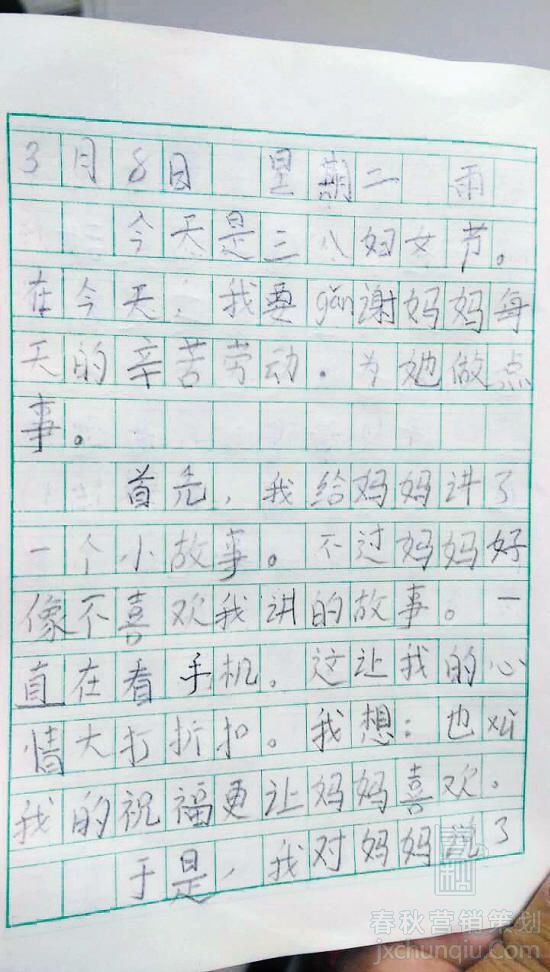 3月8日 星期二 雨
今天是三八妇女节。
在今天，我要gǎn谢妈妈每
天的辛苦劳动.为她做点
事。
首先，我给妈妈讲了
一个小故事。不过妈妈好
像不喜欢我讲的故事。一
直在看手机。这让我的心
情大打折扣。我想：也
我的祝福更让妈妈喜欢。
于是，我对妈妈说了
春秋营销策划
jxchunqiu.com